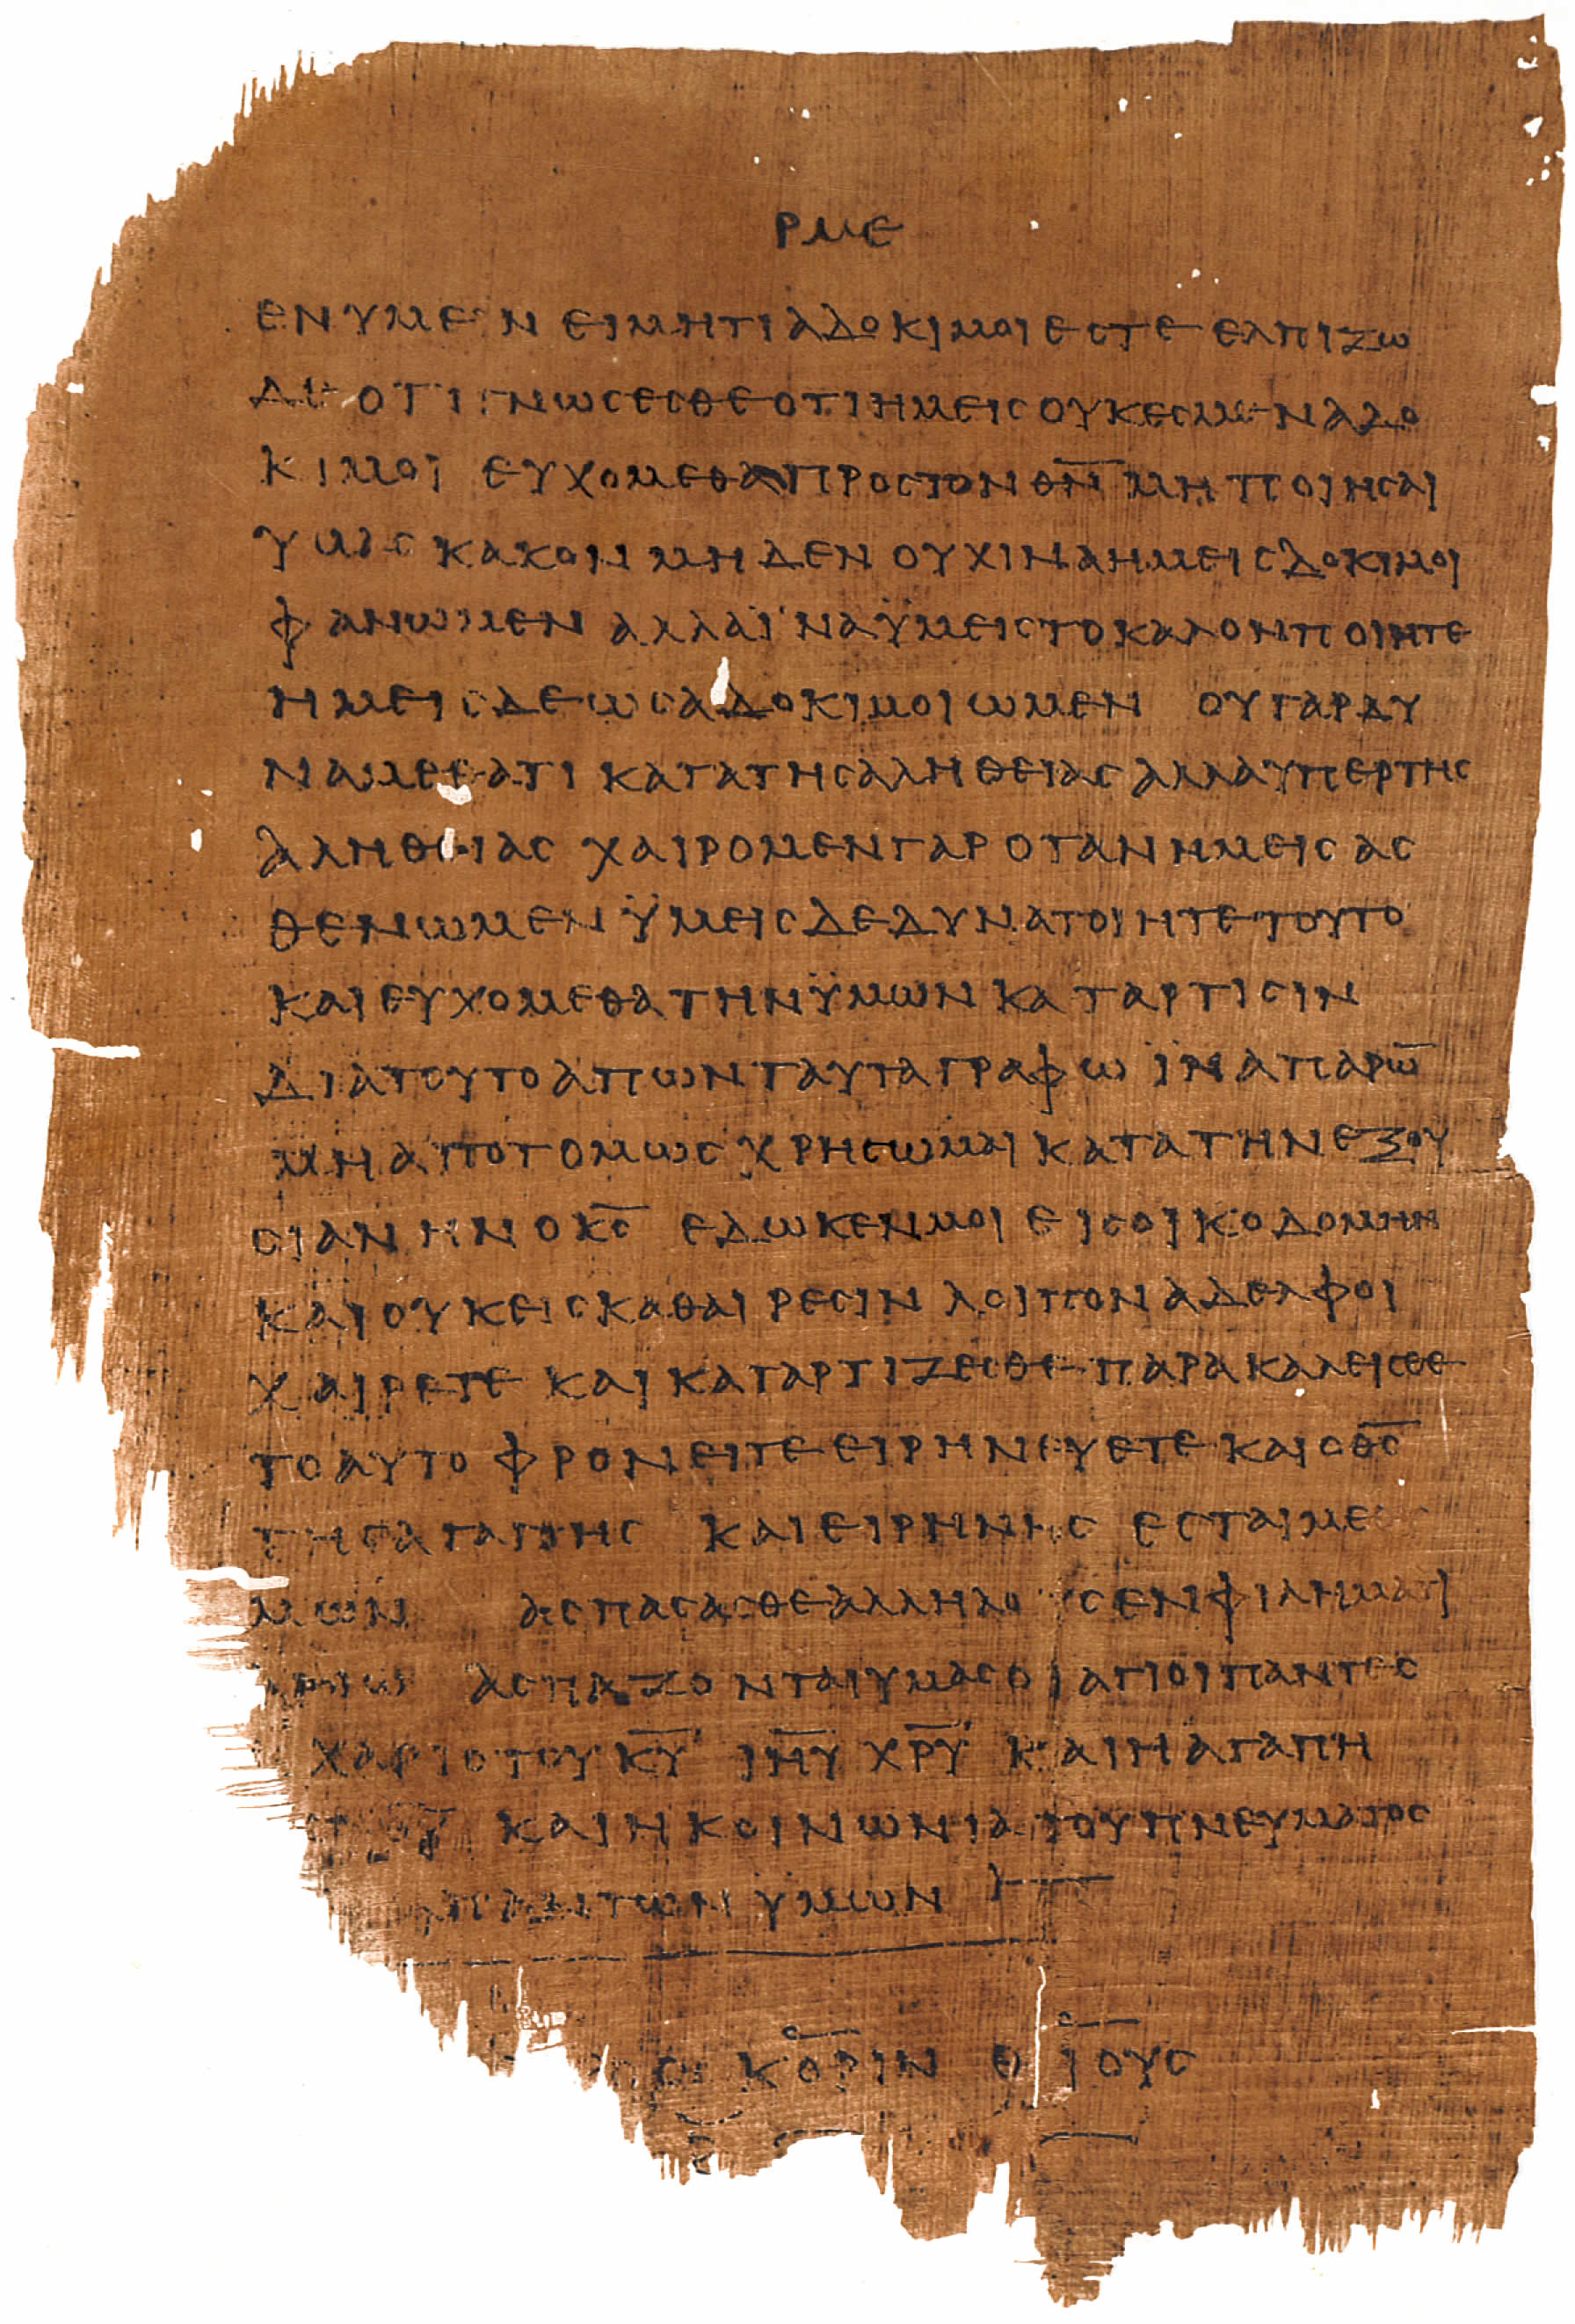 ΡΜΕ
ΕΝ ΥΜΕΙΝ ΕΙΜΗΤΙ ΑΔΟΚΙΜΟΙ ΕϹΤΕ ΕΛΠΙΖω
ΔΕ ΟΤΙ ΓΝωϹΕϹΘΕ ΟΤΙ ΗΜΕΙϹ ΟΥΚ ΕϹΜΕΝ ΑΔΟ
ΚΙΜΟΙ ΕΥΧΟΜΕΘΑ ΠΡΟϹ ΤΟΝ Θ̅Ν̅ ΜΗ ΠΟΙΗϹΑΙ
ΥΜΑϹ ΚΑΚΟΝ ΜΗΔΕΝ ΟΥΧ ΙΝΑ ΗΜΕΙϹ ΔΟΚΙΜΟΙ
ΦΑΝωΜΕΝ ΑΛΛΑ ΪΝΑ ΫΜΕΙϹ ΤΟ ΚΑΛΟΝ ΠΟΙΗΤΕ
ΗΜΕΙϹ ΔΕ ωϹ ΑΔΟΚΙΜΟΙ ωΜΕΝ ΟΥ ΓΑΡ ΔΥ
ΝΑΜΕΘΑ ΤΙ ΚΑΤΑ ΤΗϹ ΑΛΗΘΕΙΑϹ ΑΛΛΑ ΥΠΕΡ ΤΗϹ
ΑΛΗΘΕΙΑϹ ΧΑΙΡΟΜΕΝ ΓΑΡ ΟΤΑΝ ΗΜΕΙϹ ΑϹ
ΘΕΝωΜΕΝ ΫΜΕΙϹ ΔΕ ΔΥΝΑΤΟΙ ΗΤΕ ΤΟΥΤΟ
ΚΑΙ ΕΥΧΟΜΕΘΑ ΤΗΝ ΫΜωΝ ΚΑΤΑΡΤΙϹΙΝ
ΔΙΑ ΤΟΥΤΟ ΑΠωΝ ΤΑΥΤΑ ΓΡΑΦω ΪΝΑ ΠΑΡω̅
ΜΗ ΑΠΟΤΟΜωϹ ΧΡΗϹωΜΑΙ ΚΑΤΑ ΤΗΝ ΕΞΟΥ
ϹΙΑΝ ΗΝ Ο Κ̅Ϲ̅ ΕΔωΚΕΝ ΜΟΙ ΕΙϹ ΟΙΚΟΔΟΜΗΝ
ΚΑΙ ΟΥΚ ΕΙϹ ΚΑΘΑΙΡΕϹΙΝ ΛΟΙΠΟΝ ΑΔΕΛΦΟΙ
ΧΑΙΡΕΤΕ ΚΑΙ ΚΑΤΑΡΤΙΖΕϹΘΕ ΠΑΡΑΚΑΛΕΙϹΘΕ
ΤΟ ΑΥΤΟ ΦΡΟΝΕΙΤΕ ΕΙΡΗΝΕΥΕΤΕ ΚΑΙ Ο Θ̅Ϲ̅
ΤΗϹ ΑΓΑΠΗϹ ΚΑΙ ΕΙΡΗΝΗϹ ΕϹΤΑΙ ΜΕ
ΜωΝ ΑϹΠΑϹΑϹΘΕ ΑΛΛΗΛΟΥϹ ΕΝ ΦΙΛΗΜΑΤΙ
ΑϹΠΑΖΟΝΤΑΙ ΥΜΑϹ ΟΙ ΑΓΙΟΙ ΠΑΝΤΕϹ
ΧΑΡΙϹ ΤΟΥ Κ̅Υ̅ Ι̅Η̅Υ̅ Χ̅Ρ̅Υ̅ ΚΑΙ Η ΑΓΑΠΗ
ΚΑΙ Η ΚΟΙΝωΝΙΑ ΤΟΥ ΠΝΕΥΜΑΤΟϹ
ΠΑΝΤωΝ ΥΜωΝ
ΚΟΡΙΝΘΙΟΥϹ